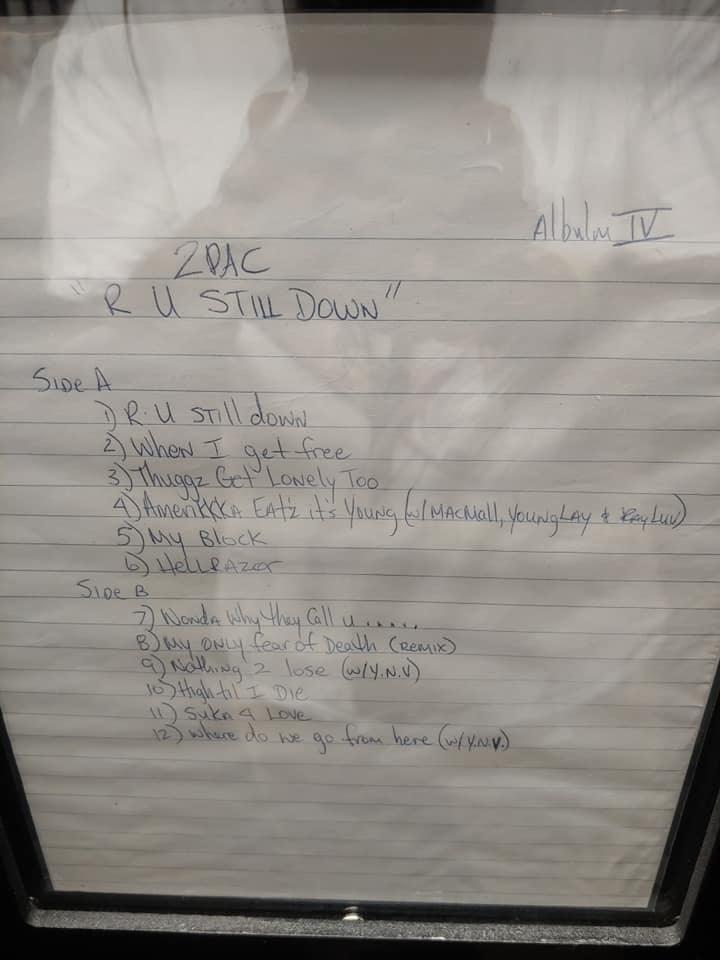 Albulm IV
2PAC
"R U STILL DOWN"
SIDE A
1) R.U STill down
2) When I get free
3) Thuggz Get Lonely Too
4) AmeriKKKA EAt'z it's Young (w/ MACMall, YOUNGLAY & RAY LUV)
5) My Block
6) HellRAzor
SIDE B
7) Wonda Why They Call U.....
8) My ONLY fear of Death (REMIX)
9) Nothing 2 lose (w/Y.N.V)
10) High til I Die
11) Suka 4 Love
12) where do we go from here (w/ Y.N.V.)